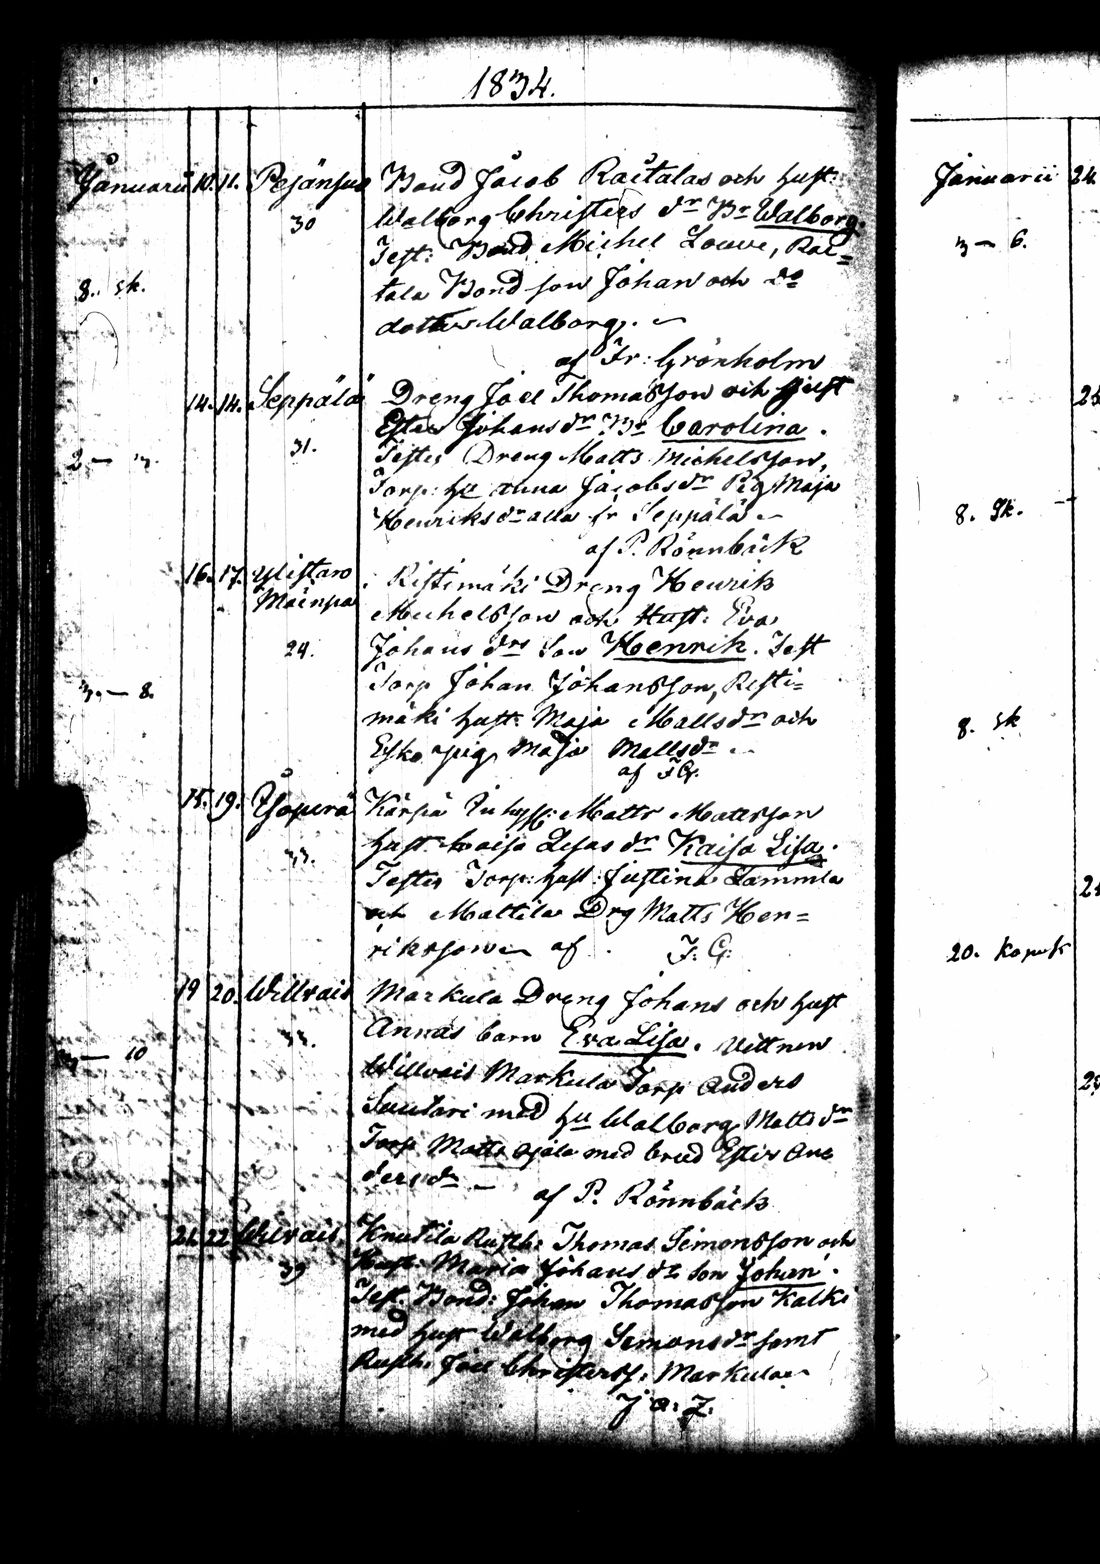 1834.
Januarii 10. 11. Pejänsuo Bond Jacob Raitalas och hust:
30 Walborg Christers dr Br Walborg.
Test: Bond Michel Louve, Rai=
8. sk. tala Bond son Johan och do
dotter Walborg.
af Fr: Grönholm
14. 14. Seppälä Dreng Joel Thomasson och Hust
Ester Johansdr Br Carolina.
31. Testes Dreng Matts Michelsson,
Torp: hu Anna Jacobsdr Pig Maja
Henriksdr alla fr Seppälä
af P. Rönnbäck
16. 17. Ylistaro Ristimäki Dreng Henrik
Mäinpa Michelsson och Hust: Eva
24. Johans drs Son Henrik. Test
3. — 8. Torp Johan Johansson, Risti=
mäki hust: Maja Mattsdr och
Esko pig Maja Mattsdr
af F.G.
15. 19. Yöperä Kärpä Inhyss: Matts Mattsson
33. hust Caisa Lisas dr Kaisa Lisa.
Testes Torp: hust: Justina Lammla
och Mattila Drg Matts Hen=
riksson af F. G.
19 20. Willvais Markula Dreng Johans och hust
33. Annas barn Eva Lisa. Vittnen
— 10 Willvais Markula Torp Anders
Suutari med hu Walborg Mattsdr
Torp Matts Ojala med brud Ester An
dersdr — af P. Rönnbäck
21. 22 Wilvais. Knutila Rusth: Thomas Simonsson och
39 Hust: Maria Johans dr Son Johan.
Test. Bond: Johan Thomasson Kalki
med hust Walborg Simonsdr samt
Rusth: Joel Christerss: Markula
J. a. Z.
Januarii 24.
3 — 6.
25
8. sk.
8. sk
20. Kopek